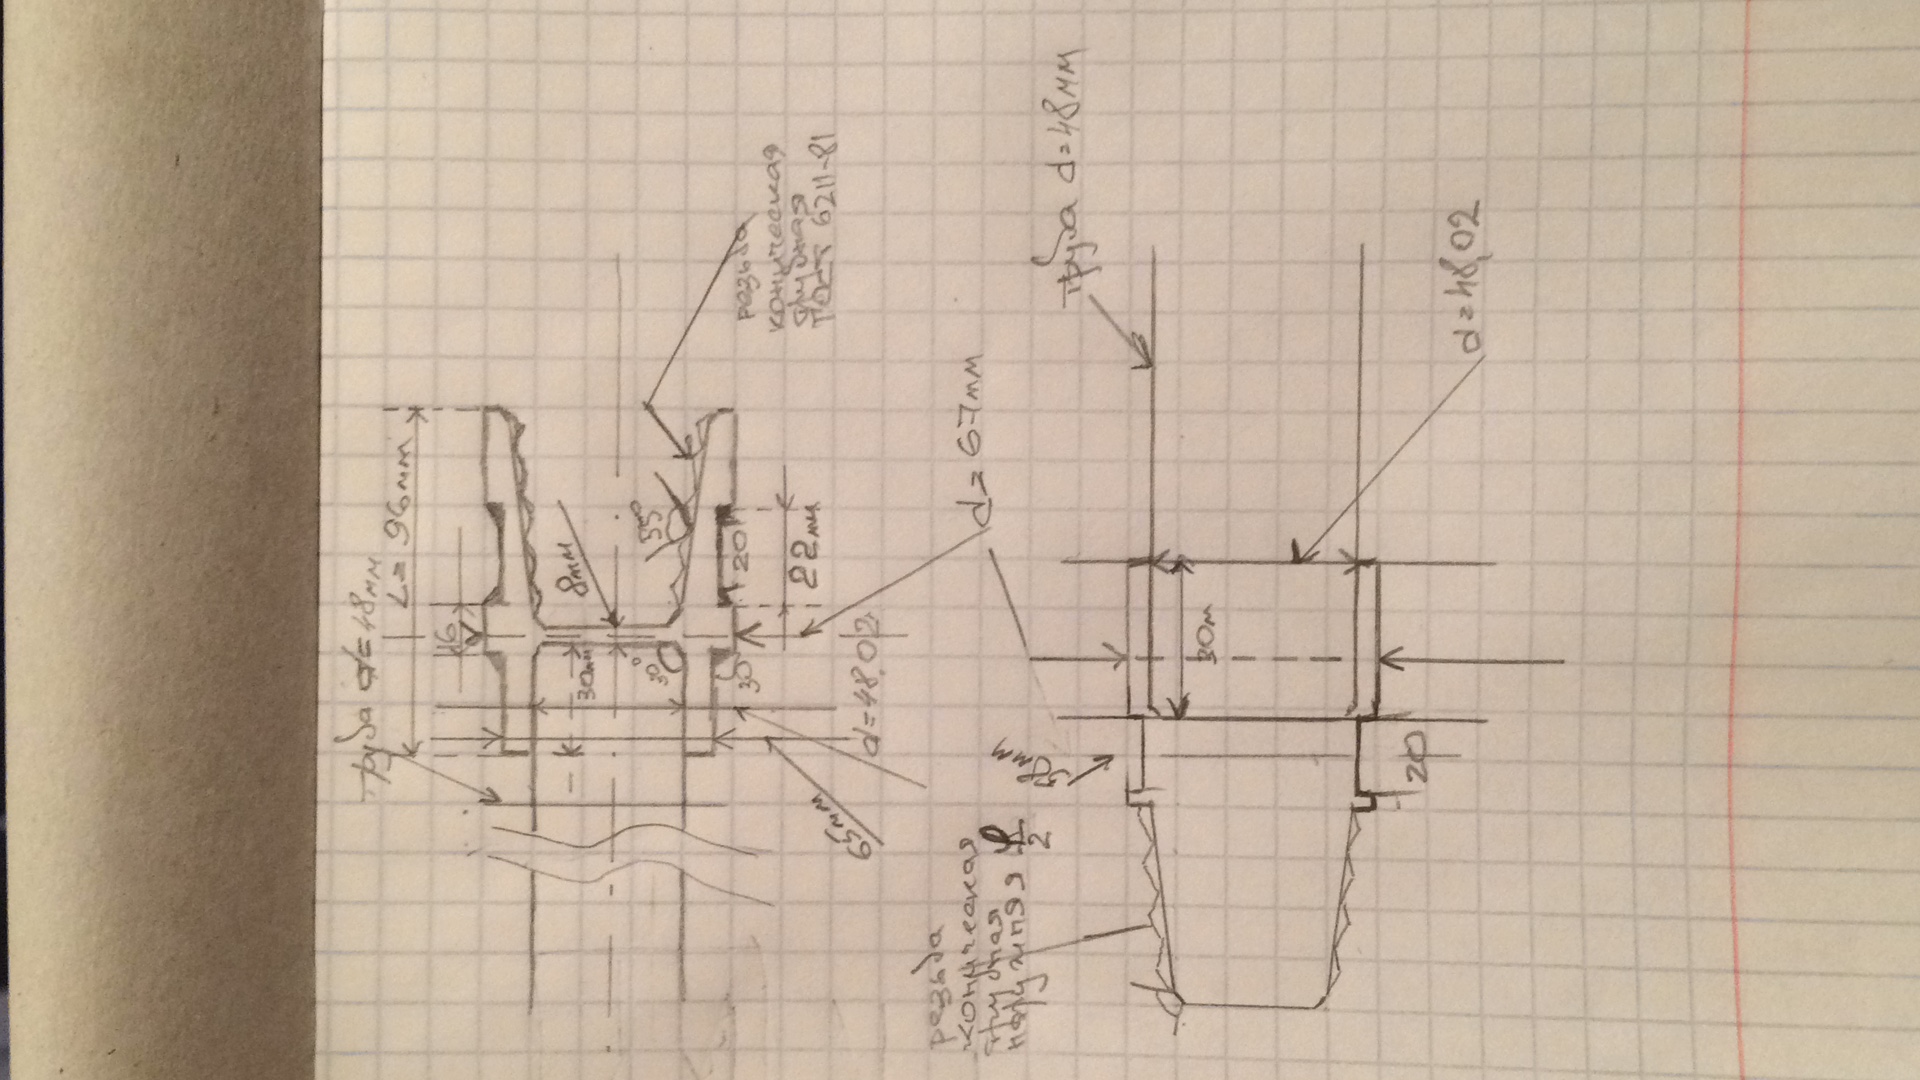 труба d=48мм
L=96мм
16
8мм
55°
20
22мм
30мм
30°
30°
d=48.02
65мм
резьба
коническая
трубная
ГОСТ 6211-81
d=67мм
труба d=48мм
d=48,02
30м
20
резьба
коническая
трубная
наружная
2